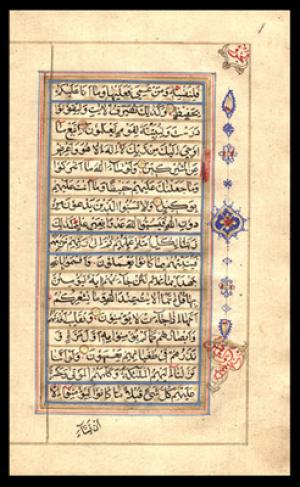 فلنفسه ومن عمي فعليها وما انا عليكم
بحفيظ وكذلك نصرف الايات وليقولوا
درست ولنبينه لقوم يعلمون اتبع ما
اوحي اليك من ربك لا اله الا هو واعرض
عن المشركين ولو شاء الله ما اشركوا
وما جعلناك عليهم حفيظا وما انت عليهم
بوكيل ولا تسبوا الذين يدعون من
دون الله فيسبوا الله عدوا بغير علم كذلك
زينا لكل امة عملهم ثم الى ربهم مرجعهم
فينبئهم بما كانوا يعملون واقسموا بالله
جهد ايمانهم لئن جاءتهم اية ليؤمنن
بها قل انما الايات عند الله وما يشعركم
انها اذا جاءت لا يؤمنون ونقلب افئدتهم
وابصارهم كما لم يؤمنوا به اول مرة و
نذرهم في طغيانهم يعمهون ولو اننا
نزلنا اليهم الملئكة وكلمهم الموتى وحشرنا
عليهم كل شيء قبلا ما كانوا ليؤمنوا الا
ان يشاء